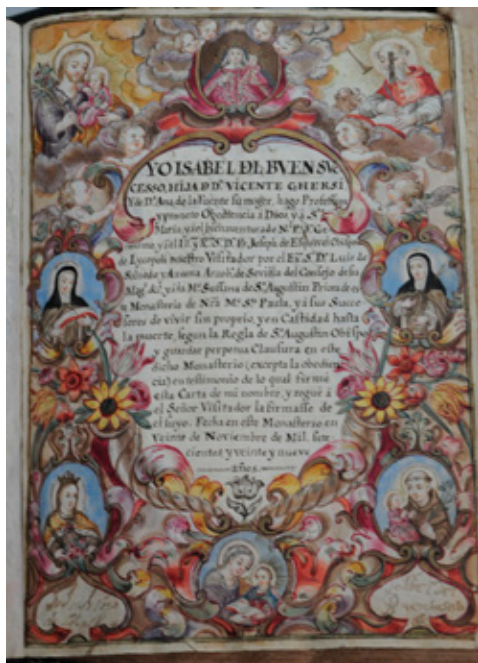 YO ISABEL DL BVEN SV
CESSO, HIJA D Dⁿ. VICENTE GHERSI
Y de Dª. Ana de la Fuente su muger, hago Profession
y prometo Obediencia a Dios, y á Sᵗª
Maria, y al bienaventurado N. P. S. Ge
ronimo, y al Ill. y R. S. D. D. Joseph de Esquivel Obispo
de Lycopoli nuestro Visitador por el Ex. S. D. Luis de
Salzedo y Azcona Arzob. de Sevilla del Consejo de su
Mag. &c. y á la Mᵉ. Susana de S. Augustin Priora de es
te Monasterio de Nrã Mᵉ. Sᵗª Paula, y á sus Succe
sores de vivir sin proprio, y en Castidad hasta
la muerte, segun la Regla de S. Augustin Obispo
y guardar perpetua Clausura en este
dicho Monasterio (excepta la obedien
cia) en testimonio de lo qual firmé
esta Carta de mi nombre, y rogué á
el Señor Visitador la firmasse de
el suyo. Fecha en este Monasterio en
Veinte de Noviembre de Mil, sete
cientos y veinte y nueve
años